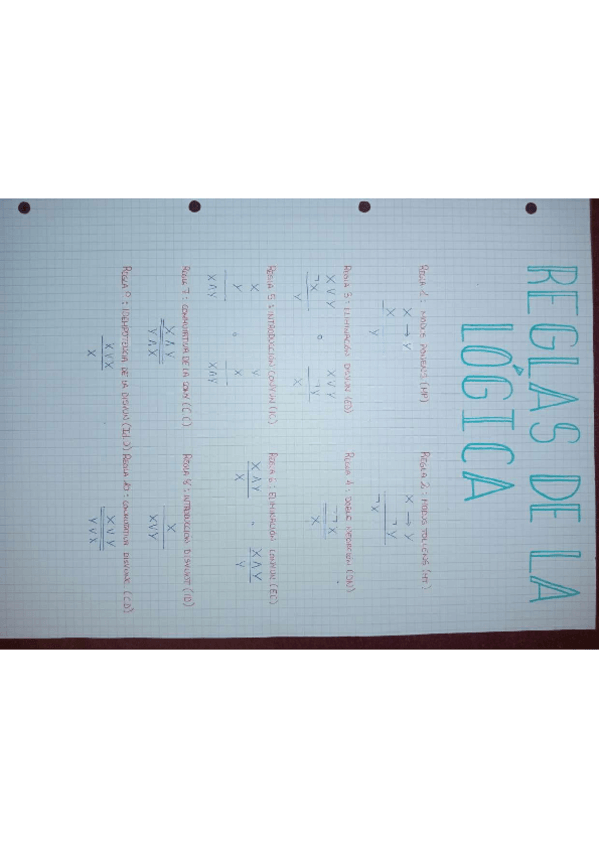 REGLAS DE LA
LÓGICA
REGLA 1: MODUS PONENS (MP)
X → Y
X
Y
REGLA 2: MODUS TOLLENS (MT)
X → Y
¬Y
¬X
REGLA 3: ELIMINACIÓN DISYUN (ED)
X ∨ Y
¬X
Y
o
X ∨ Y
¬Y
X
REGLA 4: DOBLE NEGACIÓN (DN)
X
REGLA 5: INTRODUCCIÓN CONJUN (IC)
X
Y
X∧Y
o
Y
X
X∧Y
REGLA 6: ELIMINACIÓN CONJUN (EC)
X∧Y
X
o
X∧Y
Y
REGLA 7: CONMUTATIVA DE LA CONJ (C.C)
X∧Y
Y∧X
REGLA 8: INTRODUCCION DISYUNT (ID)
X
X∨Y
REGLA 9: IDEMPOTENCIA DE LA DISYUN (Id.D)
X∨X
X
REGLA 10: CONMUTATIVA DISYUNC. (C.D)
X∨Y
Y∨X